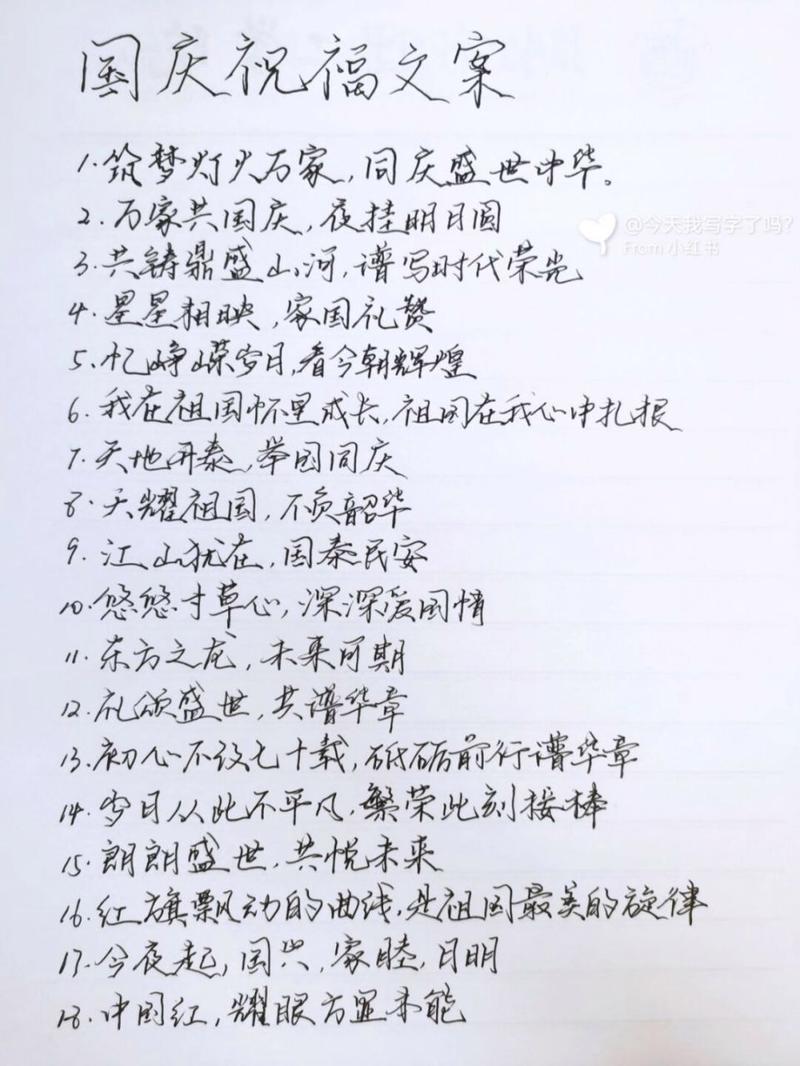 国庆祝福文案
1.筑梦灯火万家,同庆盛世中华。
2.万家共国庆,夜挂明月圆
@今天我写字了吗?
From 小红书
3.共铸鼎盛山河,谱写时代荣光
4.星星相映,家国礼赞
5.忆峥嵘岁月,看今朝辉煌
6.我在祖国怀里成长,祖国在我心中扎根
7.天地开泰,举国同庆
8.天耀祖国,不负韶华
9.江山犹在,国泰民安
10.悠悠寸草心,深深爱国情
11.东方之龙,未来可期
12.礼颂盛世,共谱华章
13.初心不改七十载,砥砺前行谱华章
14.岁月从此不平凡,繁荣此刻接棒
15.朗朗盛世,共悦未来
16.红旗飘动的曲线,是祖国最美的旋律
17.今夜起,国兴,家睦,月明
18.中国红,耀眼方显